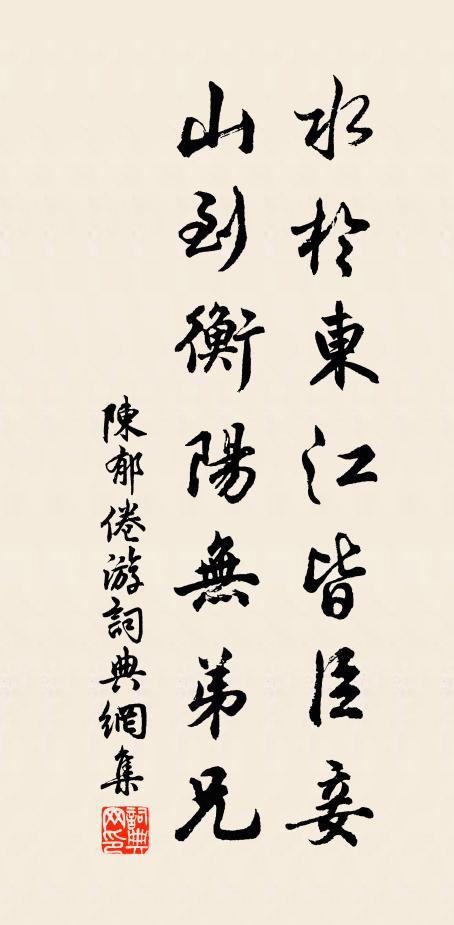 水於東江皆臣妾
山到衡陽無弟兄
陳郁倦游詞典網集
詞典網印